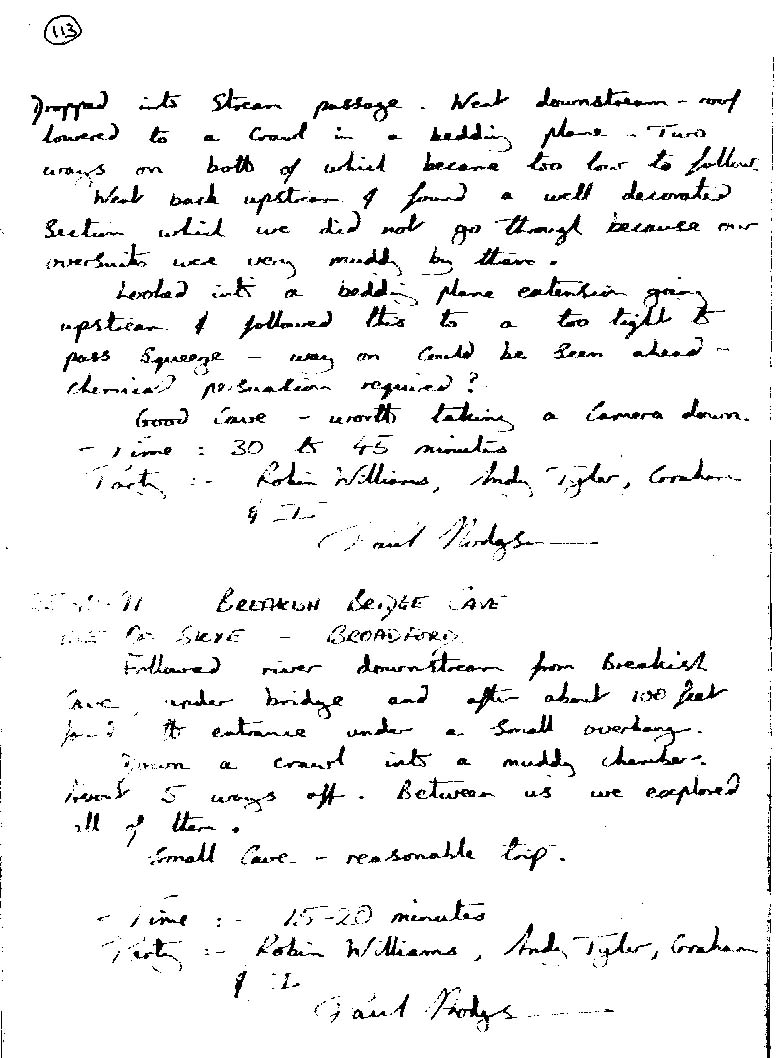 113
Dropped into Stream passage. Went downstream - roof
lowered to a crawl in a bedding plane - Two
ways on both of which became too low to follow.
Went back upstream & found a well decorated
Section which we did not go through because our
oversuits were very muddy by then.
Looked into a bedding plane extension going
upstream & followed this to a too tight to
pass squeeze - way on could be seen ahead -
chemical persuation required?
Good Cave - worth taking a Camera down.
- Time : 30 to 45 minutes
Party :- Robin Williams, Andy Tyler, Graham
& I
Paul Hodgs
91 BREAKISH BRIDGE CAVE
OF SKYE - BROADFORD
Followed river downstream from Breakish
Cave, under bridge and after about 100 feet
found the entrance under a small overhang.
Down a crawl into a muddy chamber.
About 5 ways off. Between us we explored
all of them.
Small Cave - reasonable trip.
- Time :- 15-20 minutes
Party :- Robin Williams, Andy Tyler, Graham
& I
Paul Hodgs